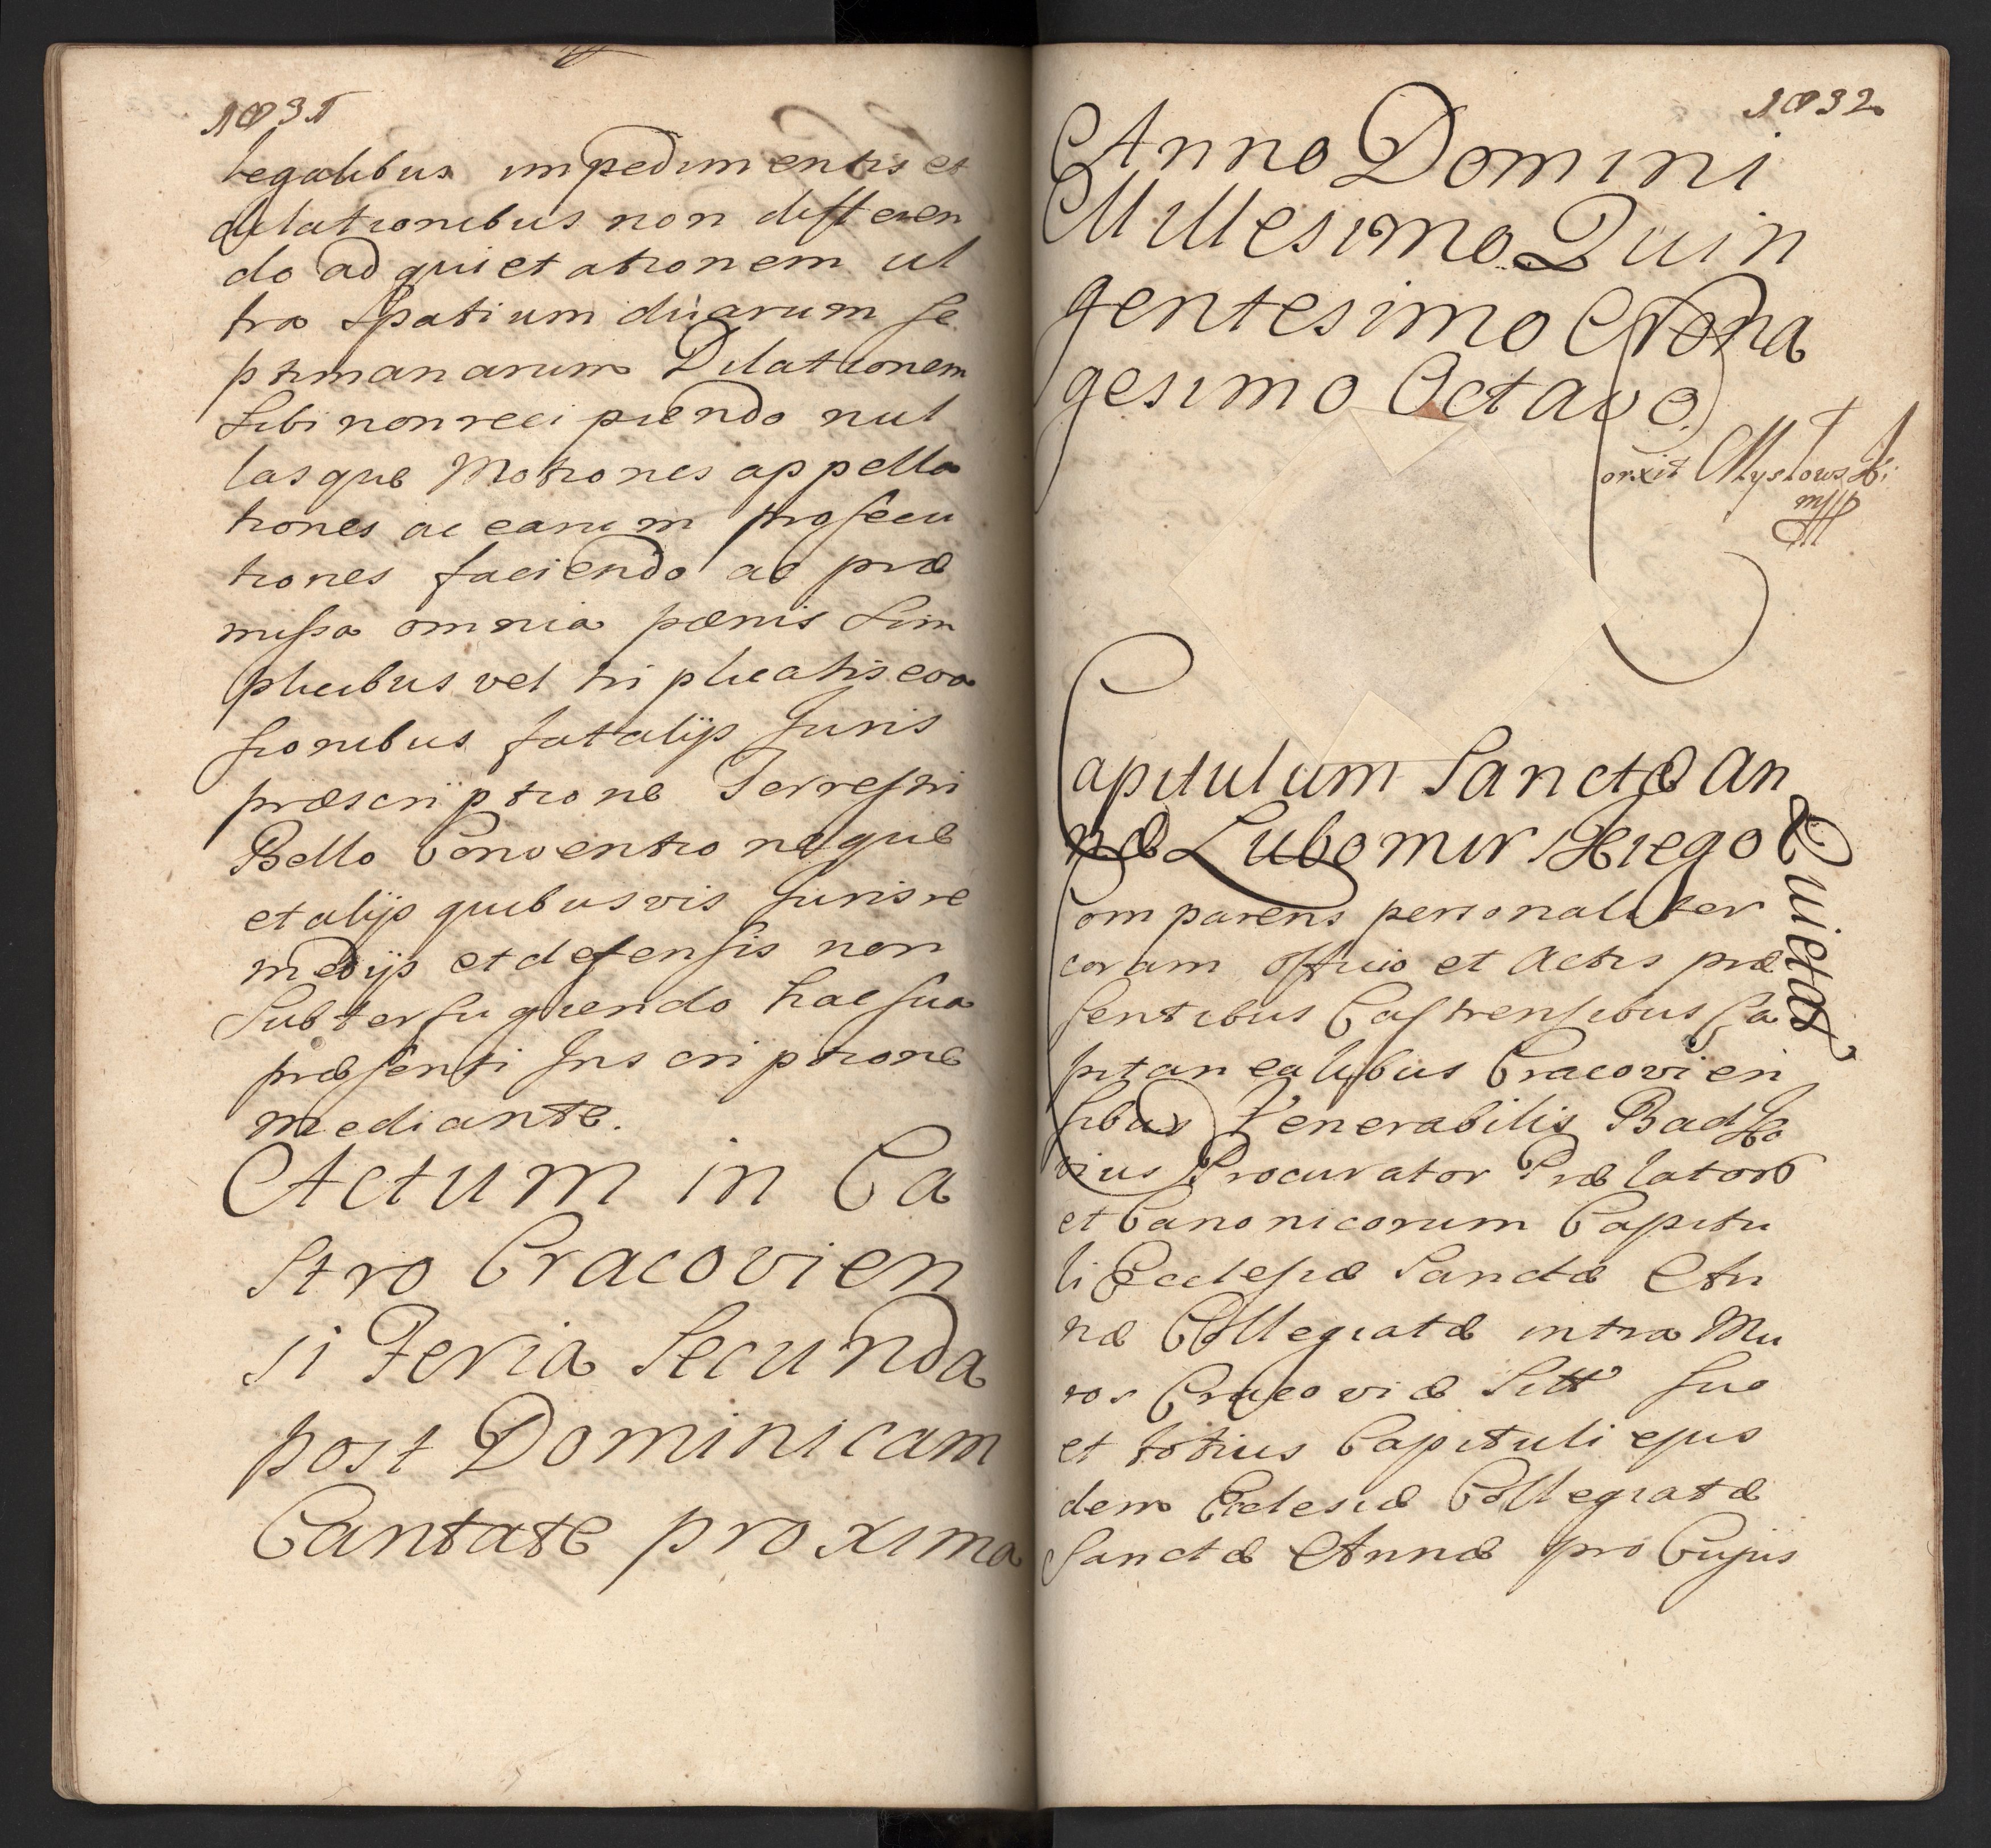 1031
legalibus impedimentis et
dilationibus non differen
do ad quietationem ul
tra Spatium duarum se
ptimanarum Dilationem
Sibi non recipiendo nul
lasque Motiones appella
tiones ac earum prosecu
tiones faciendo ac præ
missa omnia pænis Sim
plicibus vel triplicatis eva
sionibus fatalijs Juris
præscriptione Terrestri
Bello Conventioneque
et alijs quibusvis Juris re
medijs et defensis non
Subterfugiendo hac sua
præsenti Inscriptione
mediante.
Actum in Ca
stro Cracovien
si Feria Secunda
post Dominicam
Cantate proxima
1032
Anno Domini
Millesimo Quin
gentesimo Nona
gesimo Octavo
Mysłowski
mpp
Capitulum Sanctæ An
næ Lubomirskiego
Quietat
Comparens personaliter
coram Officio et Actis præ
sentibus Castrensibus Ca
pitanealibus Cracovien
sibus Venerabilis Badsko
vius Procurator Prælator
et Canonicorum Capitu
li Ecclesiæ Sanctæ An
næ Collegiatæ intra Mu
ros Cracoviæ Sitt suo
et totius Capituli ejus
dem Eclesiæ Collegiatæ
Sanctæ Annæ pro Cujus